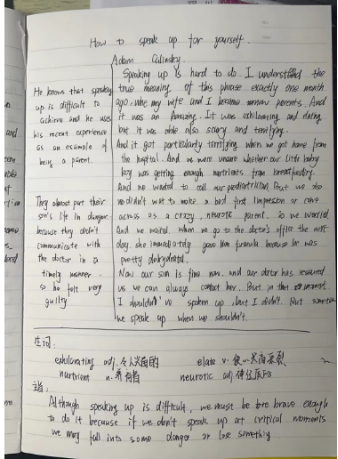 How to speak up for yourself.
Adam Galinsky
Speaking up is hard to do. I understood the
true meaning of this phrase exactly one month
ago. when my wife and I became new parents. And
it was an Amazing. It was exhilarating and elating
but it was also scary and terrifying.
And it got particularly terrifying when we got home from
the hospital. And we were unsure whether our little baby
boy was getting enough nutrients from breastfeeding.
And we wanted to call our pediatrician But we also
we didn't want to make a bad first impression or come
across as a crazy, neurotic parent. So we worried
And we waited. when we go to the doctor's office the next
day she immediately gave him formula because he was
pretty dehydrated.
Now our son is fine now. and our doctor has reassured
us we can always contact her. But in that moment
I should've spoken up, but I didn't. But sometimes
we speak up when we shouldn't.
He knows that speaking
up is difficult to
achieve and he uses
his recent experience
as an example of
being a parent.
They almost put their
son's life in danger
because they didn't
communicate with
the doctor in a
timely manner.
so he felt very
guilty
生词:
exhilarating adj.
elate v.
nutrient n.
neurotic adj.
Although speaking up is difficult, we must be bre brave enough
to do it because if we don't speak up at critical moments
we may fall into some danger or lose something